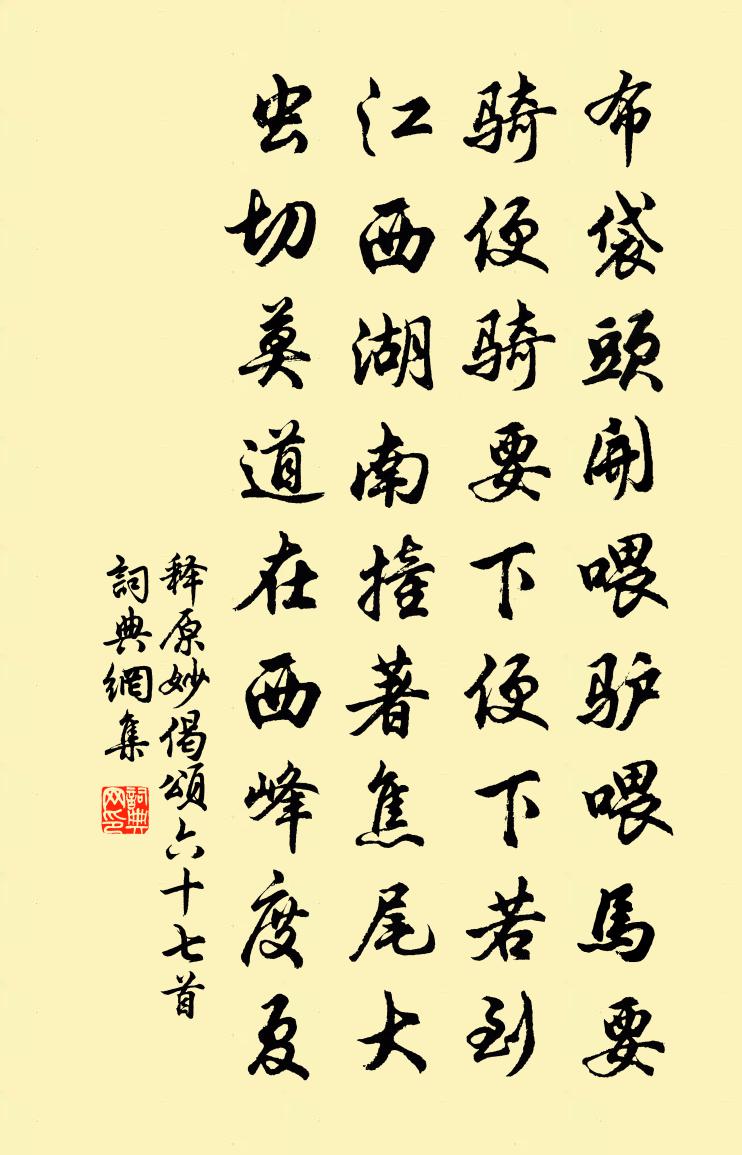 布袋頭開喂驴喂馬要
骑便骑要下便下若到
江西湖南撞著焦尾大
虫切莫道在西峰度夏
释原妙偈頌六十七首
詞典網集
詞典网印